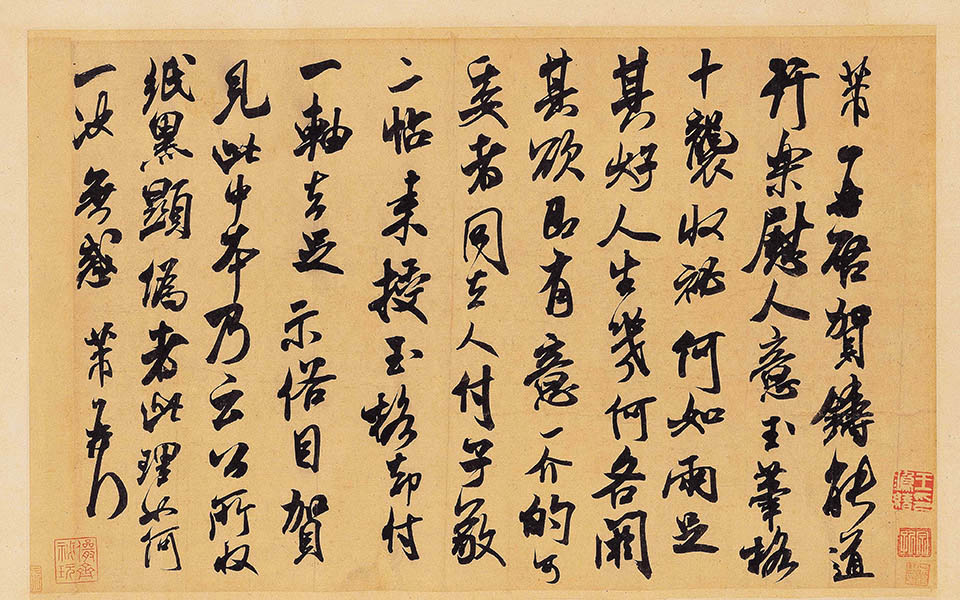 芾再啓賀鑄能道
行樂慰人意玉筆格
十襲收祕何如兩足
其好人生幾何各闕
其欲即有意一介的可
委者同去人付子敬
二帖來授玉格却付
一軸去足示俗目賀
見此中本乃云公所收
紙黑顯偽者此理如何
一决無惑芾再行